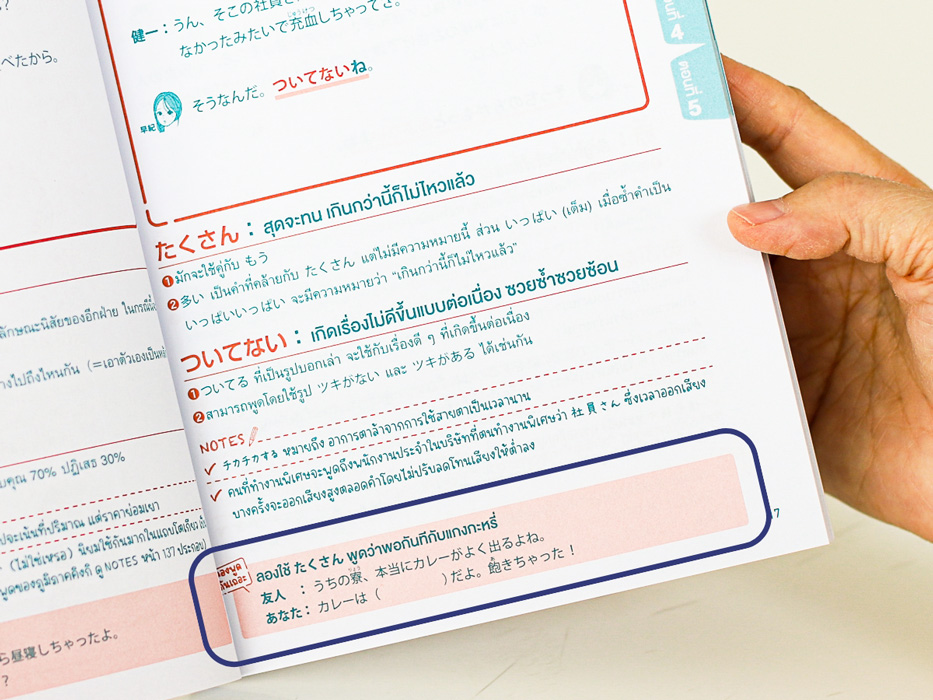 べたから。
ลักษณะนิสัยของอีกฝ่าย ในกรณี
างไปถึงไหนกัน (=เอาตัวเองเป็น
บคุณ 70% ปฏิเสธ 30%
ปจะเน้นที่ปริมาณ แต่ราคาย่อมเยา
(ไม่ใช่เหรอ) นิยมใช้กันมากในแถบโตเกียว
พูดของภูมิภาคคิงกิ ดู NOTES หน้า 137 ประกอบ)
ら昼寝しちゃったよ。
?
健一：うん、そこの社員さ
なかったみたいで充血しちゃってさ。
じゅうけつ
早紀
そうなんだ。ついてないね。
บทที่ 4
บทที่ 5
たくさん : สุดจะทน เกินกว่านี้ก็ไม่ไหวแล้ว
❶ มักจะใช้คู่กับ もう
❷ 多い เป็นคำที่คล้ายกับ たくさん แต่ไม่มีความหมายนี้ ส่วน いっぱい (เต็ม) เมื่อซ้ำคำเป็น
いっぱいいっぱい จะมีความหมายว่า “เกินกว่านี้ก็ไม่ไหวแล้ว”
ついてない : เกิดเรื่องไม่ดีขึ้นแบบต่อเนื่อง ซวยซ้ำซวยซ้อน
❶ ついてる ที่เป็นรูปบอกเล่า จะใช้กับเรื่องดี ๆ ที่เกิดขึ้นต่อเนื่อง
❷ สามารถพูดโดยใช้รูป ツキがない และ ツキがある ได้เช่นกัน
NOTES
✓ チカチカする หมายถึง อาการตาล้าจากการใช้สายตาเป็นเวลานาน
✓ คนที่ทำงานพิเศษจะพูดถึงพนักงานประจำในบริษัทที่ตนทำงานพิเศษว่า 社員さん ซึ่งเวลาออกเสียง
บางครั้งจะออกเสียงสูงตลอดคำโดยไม่ปรับลดโทนเสียงให้ต่ำลง
7
ลองพูด
กันเถอะ
ลองใช้ たくさん พูดว่าพอกันทีกับแกงกะหรี่
友人 ：うちの寮、本当にカレーがよく出るよね。
りょう
あなた：カレーは（ ）だよ。飽きちゃった！